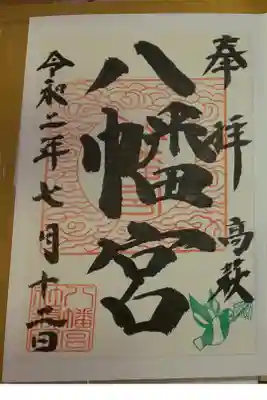 奉拝
高萩
八幡宮
令和二年七月十二日